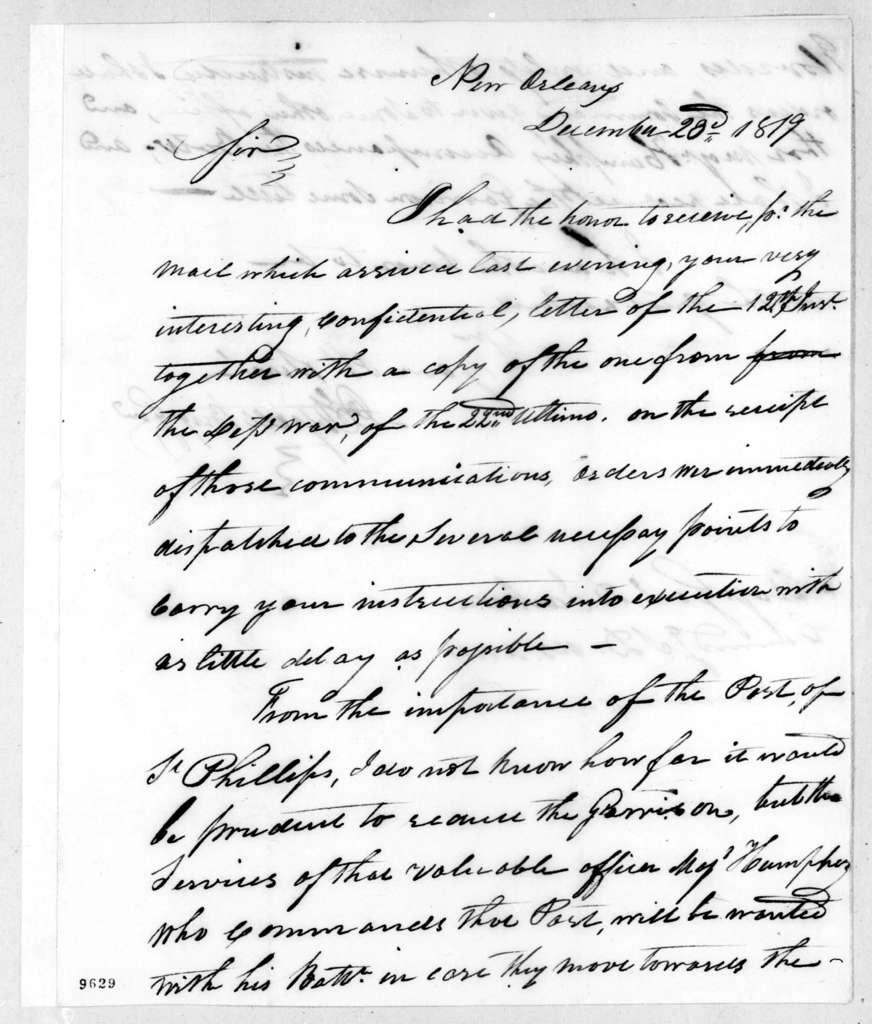 New Orleans
December 23d 1819
Sir
I had the honor to receive, pr. the
mail which arrived last evening, your very
interesting, confidential, letter of the 12th Inst.
together with a copy of the one from from
the Dept War, of the 22nd Ultimo. on the receipt
of those communications, orders were immediately
dispatched to the several necessary points to
carry your instructions into execution with
as little delay as possible —
From the importance of the Post, of
St Phillips, I do not know how far it would
be prudent to reduce the Garrison, but the
Services of that valuable officer Majr Humphrey
who commands that Post, will be wanted
with his Battn. in case they move towards the –
9629